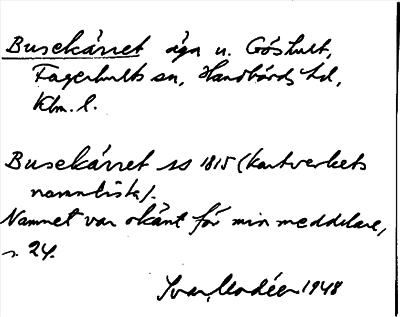 Busekärret äga u. Göshult,
Fagerhults sn, Handbörds hd,
Klm. l.
Busekärret ss 1815 (kartverkets
namnlista).
Namnet var okänt för min meddelare,
s. 24.
Ivar Modéer 1948